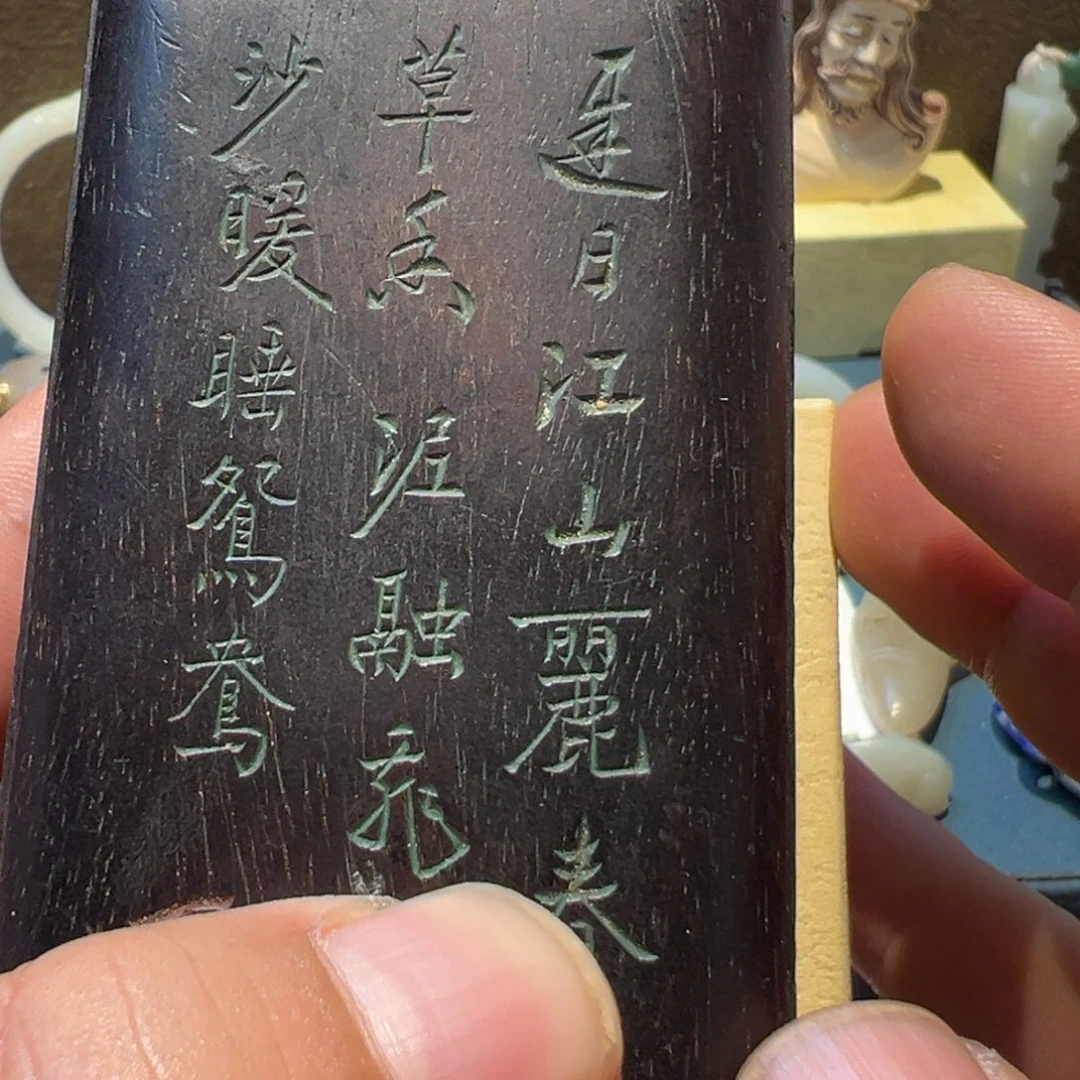 遲日江山麗春
草香泥融飛
沙暖睡鴛鴦